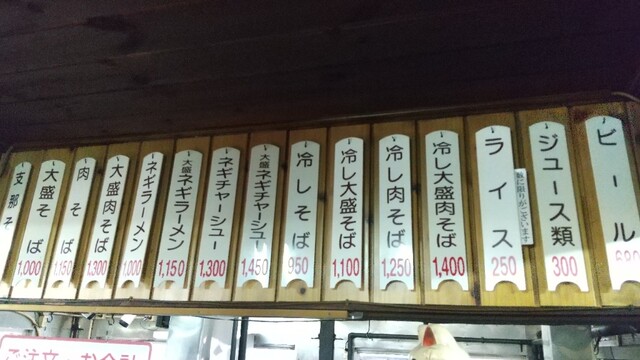 支那そ
大盛そば
1,000
肉そば
1,150
大盛肉そば
1,300
ネギラーメン
1,000
大盛ネギラーメン
1,150
ネギチャーシュー
1,300
大盛ネギチャーシュー
1,450
冷しそば
950
冷し大盛そば
1,100
冷し肉そば
1,250
冷し大盛肉そば
1,400
ライス
250
数に限りがございます
ジュース類
300
ビール
680